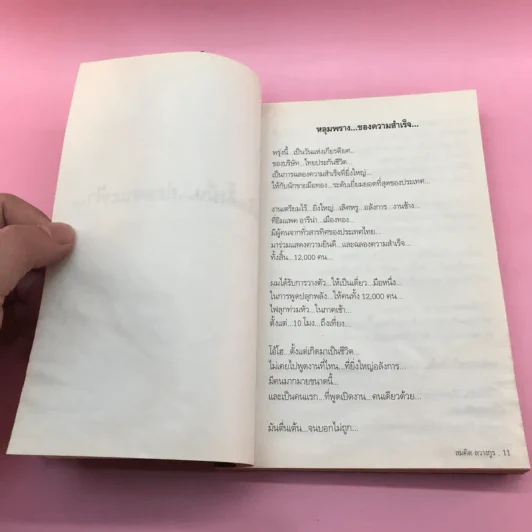 หลุมพราง...ของความสำเร็จ...
พรุ่งนี้...เป็นวันแห่งเกียรติยศ...
ของบริษัท...ไทยประกันชีวิต...
เป็นการฉลองความสำเร็จที่ยิ่งใหญ่...
ให้กับนักขายมือทอง...ระดับเยี่ยมยอดที่สุดของประเทศ...
งานเตรียมไว้...ยิ่งใหญ่...เลิศหรู...อลังการ...งานช้าง...
ที่อิมแพค อารีน่า...เมืองทอง...
มีผู้คนจากทั่วสารทิศของประเทศไทย...
มาร่วมแสดงความยินดี...และฉลองความสำเร็จ...
ทั้งสิ้น...12,000 คน...
ผมได้รับการวางตัว...ให้เป็นเดี่ยว...มือหนึ่ง...
ในการพูดปลุกพลัง...ให้คนทั้ง 12,000 คน...
ไฟลุกท่วมหัว...ในภาคเช้า...
ตั้งแต่...10 โมง...ถึงเที่ยง...
โอ้โฮ...ตั้งแต่เกิดมาเป็นชีวิต...
ไม่เคยไปพูดงานที่ไหน...ที่ยิ่งใหญ่อลังการ...
มีคนมากมายขนาดนี้...
และเป็นคนแรก...ที่พูดเปิดงาน...คนเดียวด้วย...
มันตื่นเต้น...จนบอกไม่ถูก...
สมคิด ลวางกูร . 11